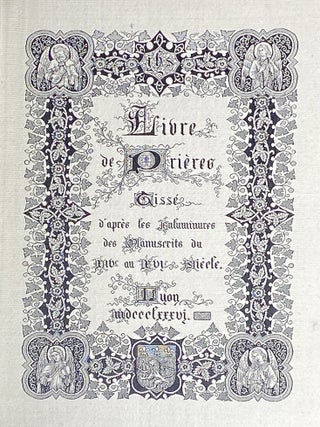 Livre
de Prières
Tissé
d'après les Enluminures
des Manuscrits du
XIVe au XVIe Siècle.
Lyon
mdccclxxxvi.